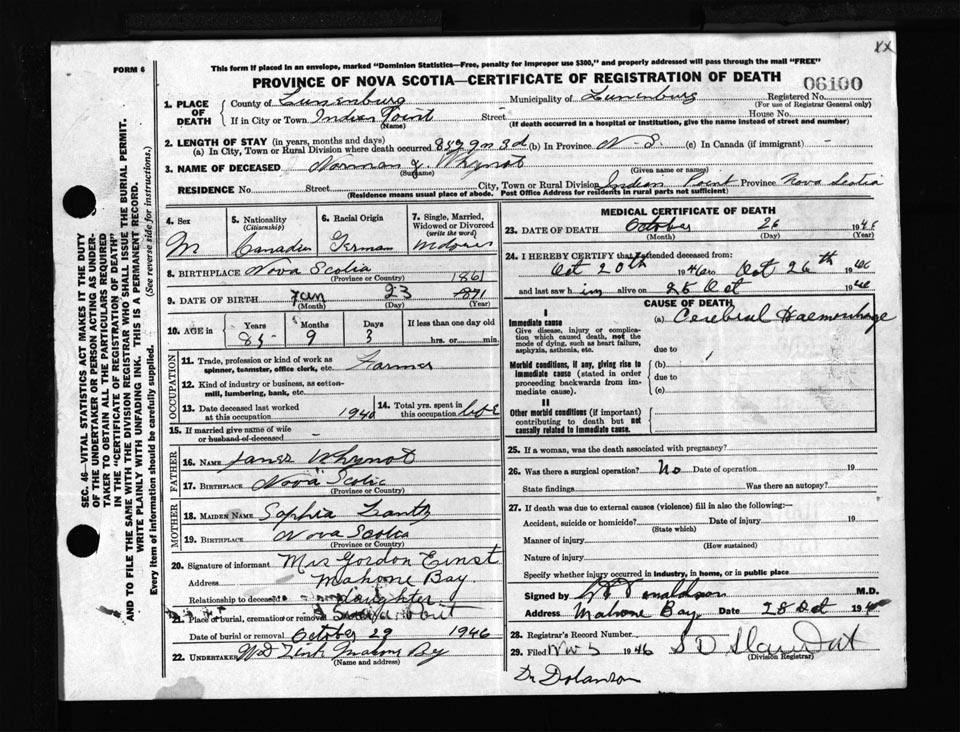 XX
FORM 6
This form if placed in an envelope, marked "Dominion Statistics—Free, penalty for improper use $300," and properly addressed will pass through the mail "FREE"
PROVINCE OF NOVA SCOTIA—CERTIFICATE OF REGISTRATION OF DEATH
06100
SEC. 46—VITAL STATISTICS ACT MAKES IT THE DUTY
OF THE UNDERTAKER OR PERSON ACTING AS UNDER-
TAKER TO OBTAIN ALL THE PARTICULARS REQUIRED
IN THE "CERTIFICATE OF REGISTRATION OF DEATH"
AND TO FILE THE SAME WITH THE DIVISION REGISTRAR WHO SHALL ISSUE THE BURIAL PERMIT.
WRITE PLAINLY WITH UNFADING INK. THIS IS A PERMANENT RECORD.
Every item of information should be carefully supplied. (See reverse side for instructions.)
1. PLACE OF DEATH
County of Lunenburg Municipality of Lunenburg Registered No.
(For use of Registrar General only)
If in City or Town Indian Point Street House No.
(Name) (If death occurred in a hospital or institution, give the name instead of street and number)
2. LENGTH OF STAY (in years, months and days)
(a) In City, Town or Rural Division where death occurred 85y 9m 3d (b) In Province N-S. (c) In Canada (if immigrant) -
3. NAME OF DECEASED Norman J. Whynot
(Surname) (Given name or names)
RESIDENCE No Street City, Town or Rural Division Indian Point Province Nova Scotia
(Residence means usual place of abode. Post Office Address for residents in rural parts not sufficient)
4. Sex
M
5. Nationality
(Citizenship)
Canadian
6. Racial Origin
German
7. Single, Married,
Widowed or Divorced
(write the word)
8. BIRTHPLACE Nova Scotia
(Province or Country)
1861
9. DATE OF BIRTH Jan 23
(Month) (Day) (Year)
10. AGE in
Years Months Days If less than one day old
85 9 3 hrs. or min.
OCCUPATION
11. Trade, profession or kind of work as
spinner, teamster, office clerk, etc. Farmer
12. Kind of industry or business, as cotton-
mill, lumbering, bank, etc.
13. Date deceased last worked
at this occupation 1940
14. Total yrs. spent
in this occupation life
15. If married give name of wife
or husband of deceased -
FATHER
16. NAME James Whynot
17. BIRTHPLACE Nova Scotia
(Province or Country)
MOTHER
18. MAIDEN NAME Sophia Zantz
19. BIRTHPLACE Nova Scotia
(Province or Country)
20. Signature of informant Mrs Gordon Ernst
Address Mahone Bay
Relationship to deceased daughter
21. Place of burial, cremation or removal
Date of burial or removal October 29 1946
22. UNDERTAKER Mahone Bay
(Name and address)
MEDICAL CERTIFICATE OF DEATH
23. DATE OF DEATH October 26
(Month) (Day) (Year)
24. I HEREBY CERTIFY that I attended deceased from:
Oct 20th 1946 to Oct 26th 1946
and last saw him alive on 25 Oct 1946
CAUSE OF DEATH
I
Immediate cause
Give disease, injury or complica-
tion which caused death, not the
mode of dying, such as heart failure,
asphyxia, asthenia, etc.
(a) Cerebral Haemorrhage
due to
Morbid conditions, if any, giving rise to
immediate cause (stated in order
proceeding backwards from im-
mediate cause).
(b)
due to
(c)
II
Other morbid conditions (if important)
contributing to death but not
causally related to immediate cause.
25. If a woman, was the death associated with pregnancy?
26. Was there a surgical operation? No Date of operation 19
State findings Was there an autopsy?
27. If death was due to external causes (violence) fill in also the following:—
Accident, suicide or homicide? Date of injury 19
(State which)
Manner of injury
(How sustained)
Nature of injury
Specify whether injury occurred in industry, in home, or in public place
Signed by Donaldson M.D.
Address Mahone Bay Date 28 Oct
28. Registrar's Record Number
29. Filed Nov 5 1946
(Division Registrar)